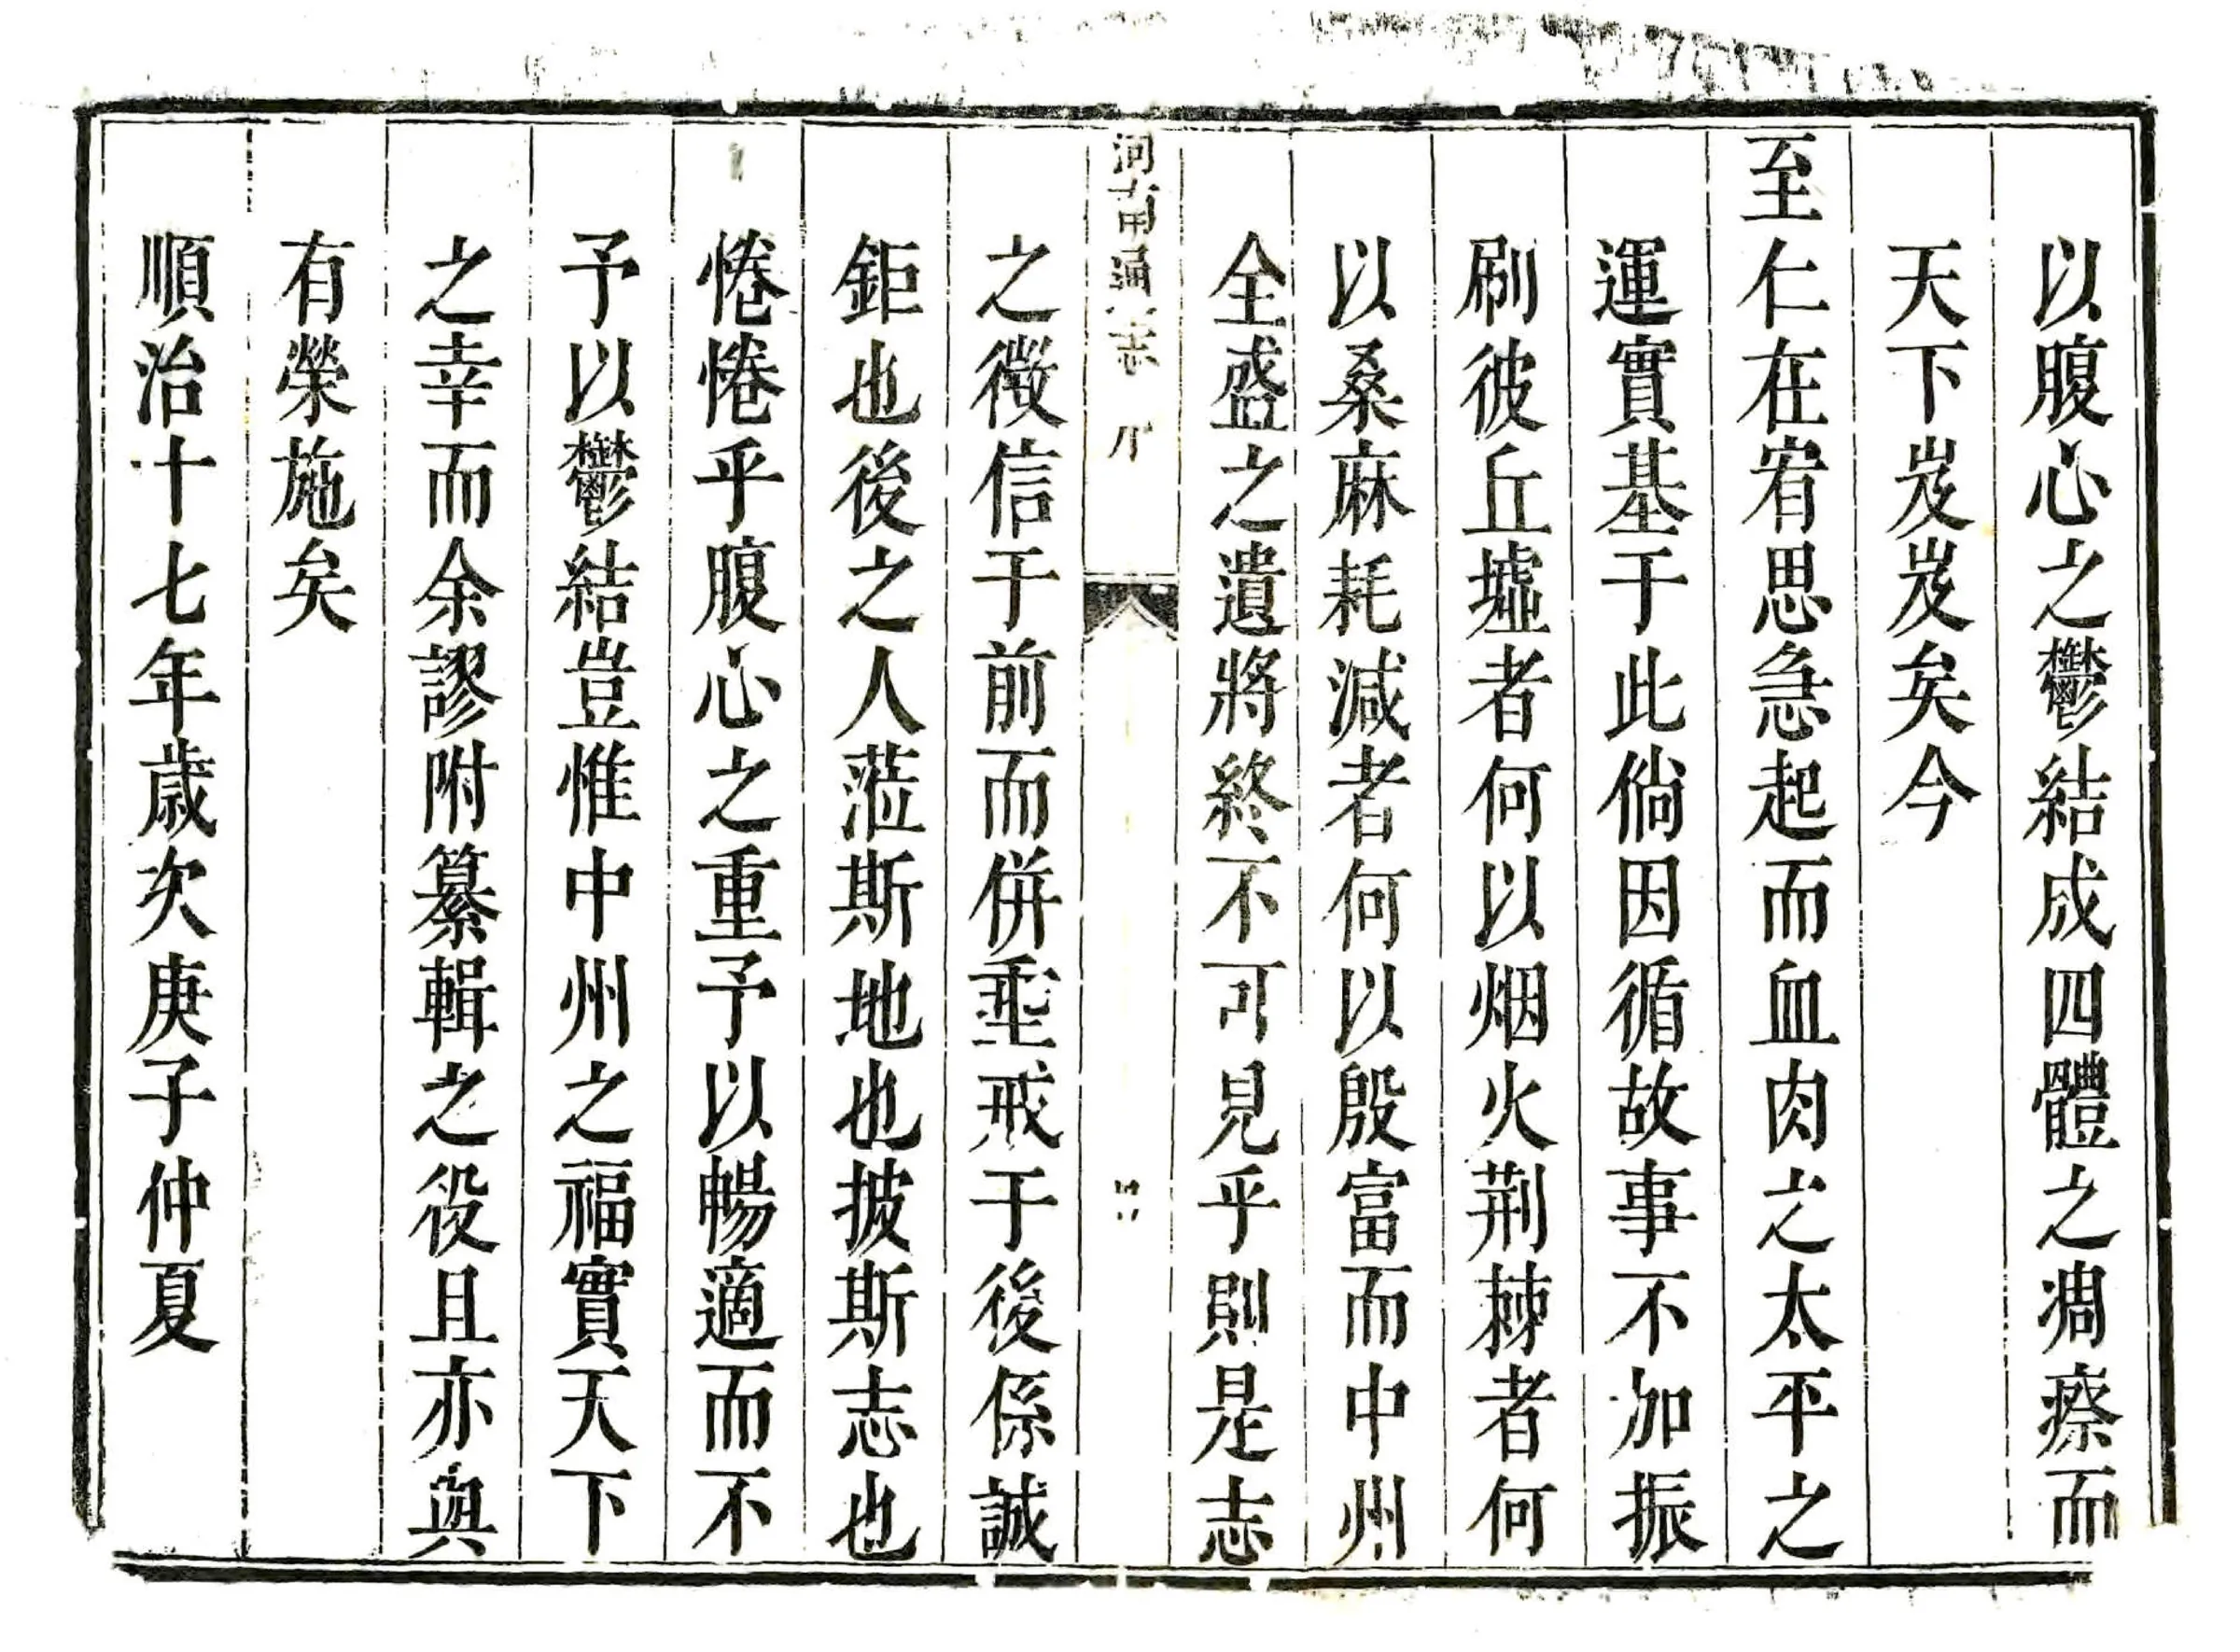 以腹心之鬱結成四體之凋瘵而
天下岌岌矣今
至仁在宥思急起而血肉之太平之
運實基于此倘因循故事不加振
刷彼丘墟者何以烟火荆棘者何
以桑麻耗減者何以殷富而中州
全盛之遺將終不可見乎則是志
河南通志
之徵信于前而併垂戒于後係誠
鉅也後之人蒞斯地也披斯志也
惓惓乎腹心之重予以暢適而不
予以鬱結豈惟中州之福實天下
之幸而余謬附纂輯之役且亦與
有榮施矣
順治十七年歲次庚子仲夏